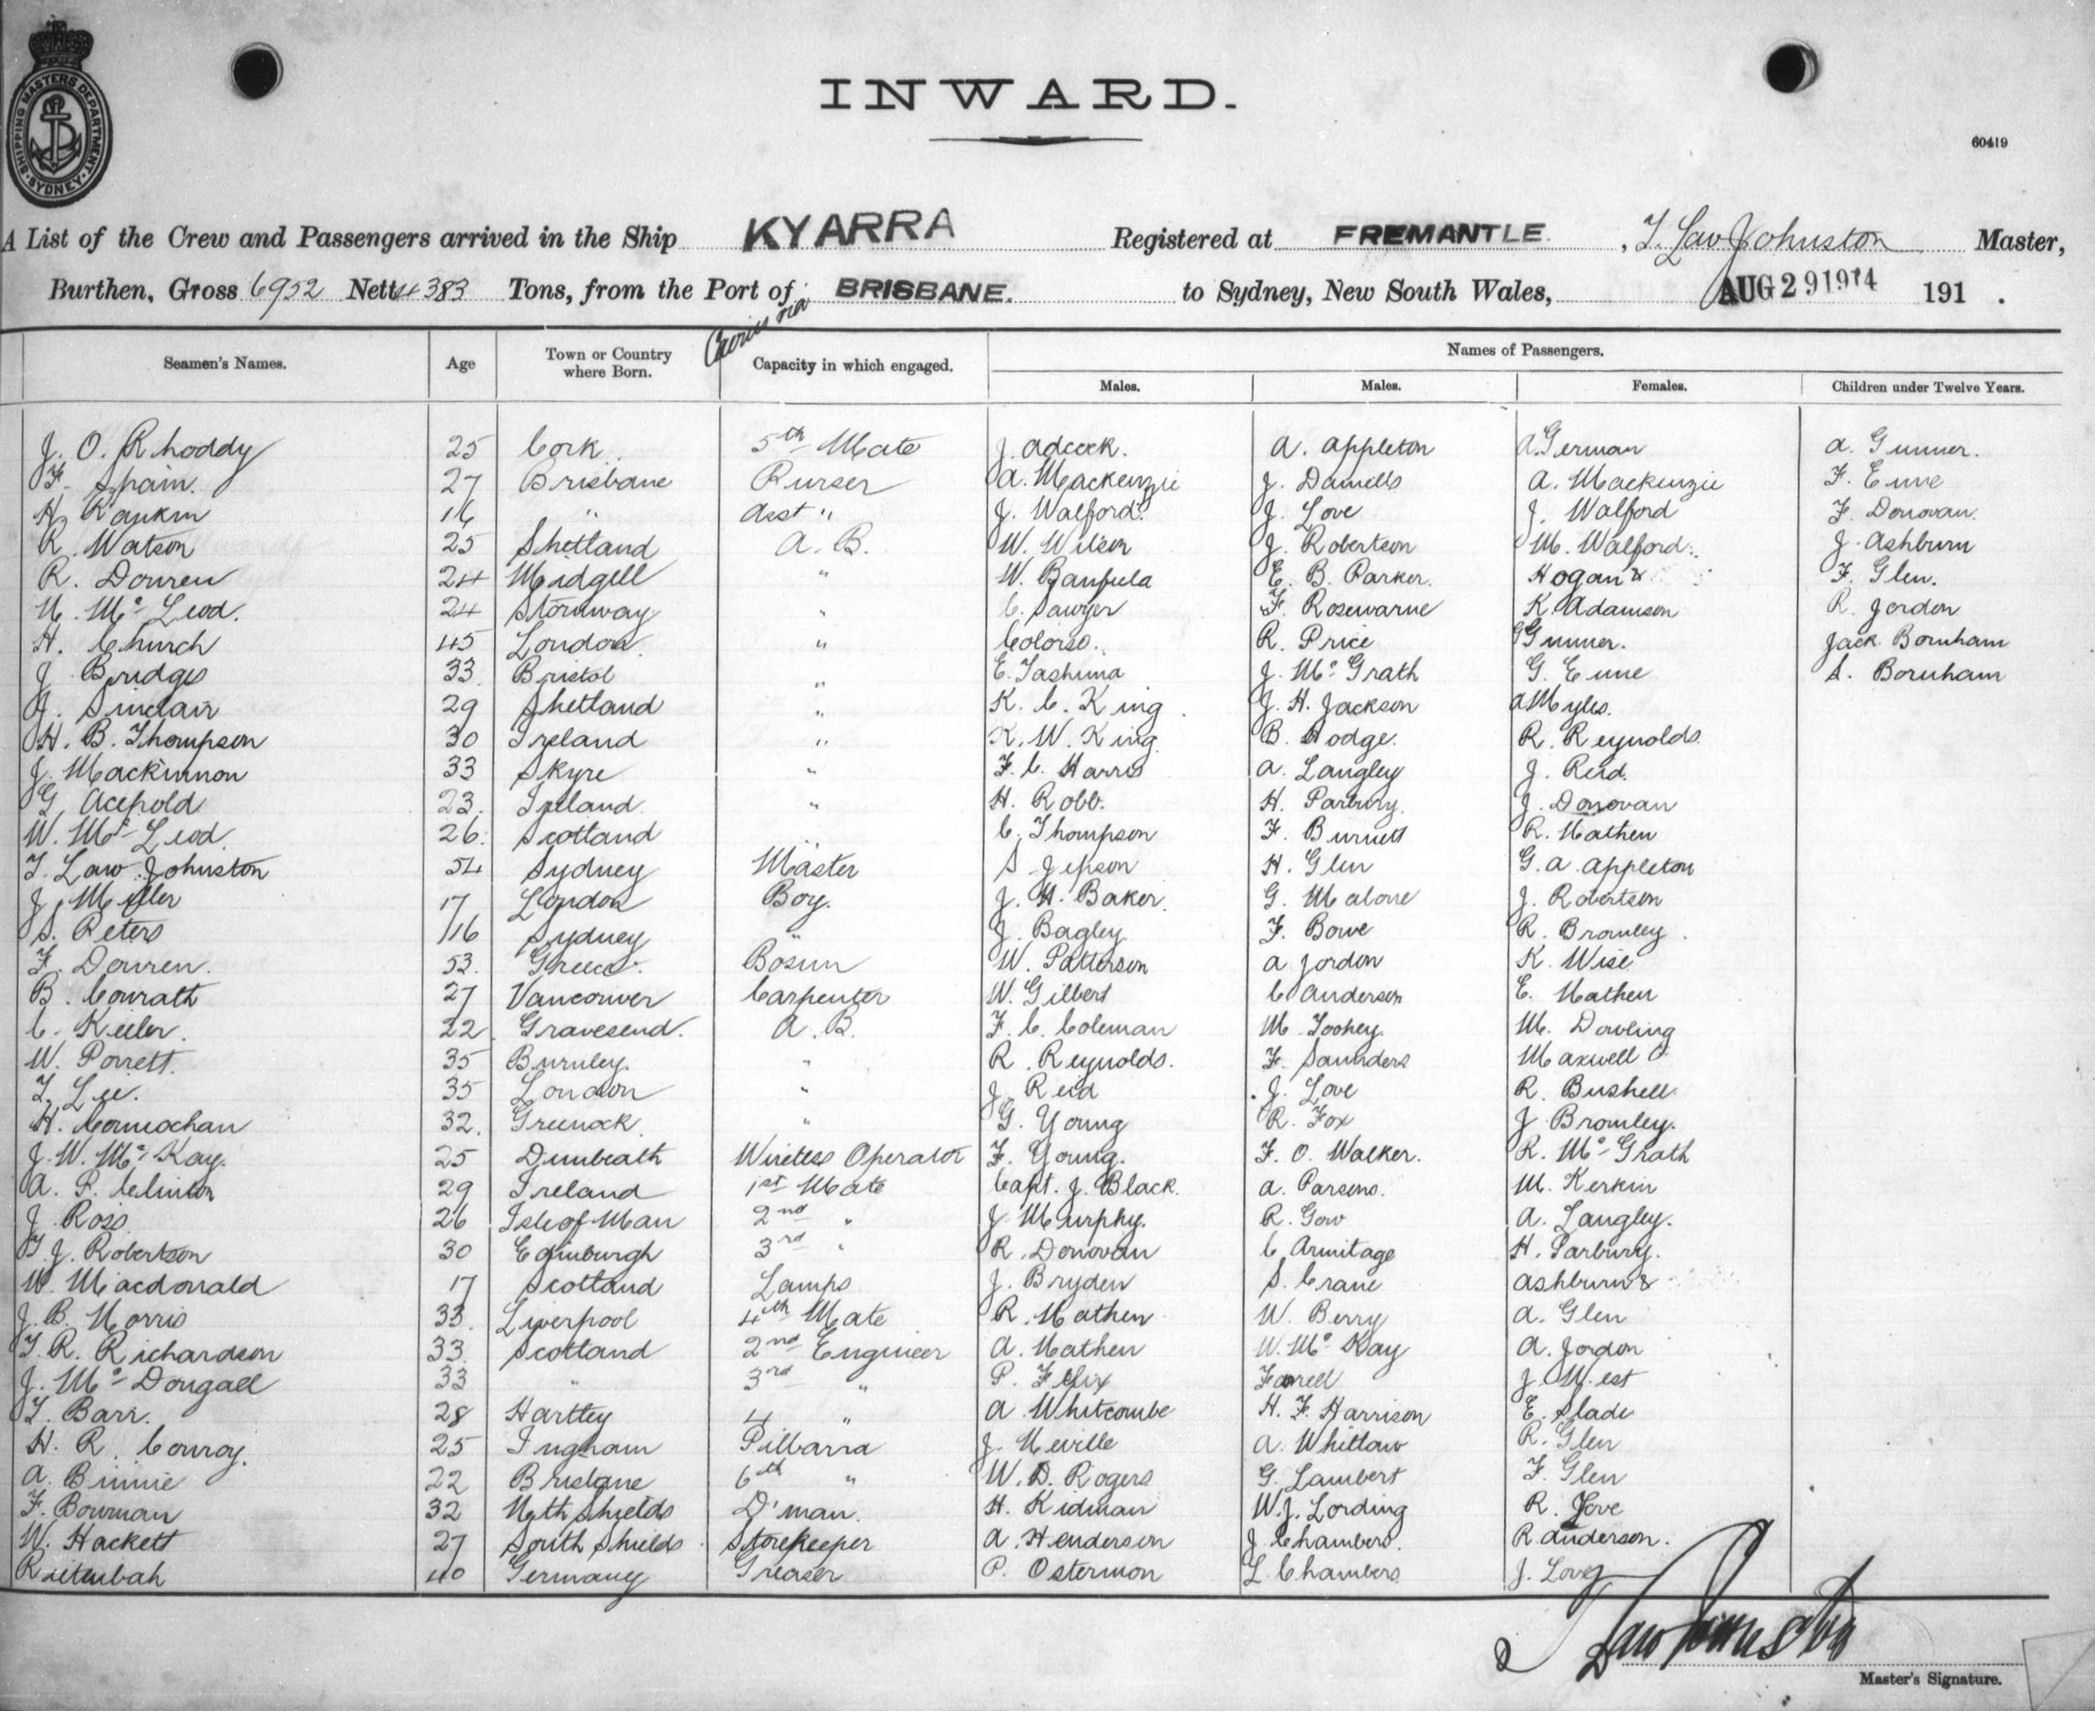 SHIPPING MASTERS DEPARTMENT · SYDNEY ·
INWARD.
60419
A List of the Crew and Passengers arrived in the Ship KYARRA Registered at FREMANTLE, T. Law Johnston Master,
Burthen, Gross 6952 Nett 4383 Tons, from the Port of BRISBANE. to Sydney, New South Wales, AUG 29 1914 191 .
Cairns via
Seamen's Names. Age Town or Country where Born. Capacity in which engaged. Names of Passengers.
Males. Males. Females. Children under Twelve Years.
J. O. Rhoddy 25 Cork 5th Mate J. Adcock. A. Appleton A German A. Gunner.
F. Spain. 27 Brisbane Purser A. Mackenzie J. Daniells A. Mackenzie F. Eune
H Rankin 16 " Asst " J. Walford. J. Love J. Walford F. Donovan.
R. Watson 25 Shetland A. B. W. Wilson J. Robertson M. Walford. J. Ashburn
R. Douren 24 Midgell " W. Banfula E. B. Parker. Hogan & F. Glen.
N. Mc Leod. 24 Stornway " C. Sawyer F. Rosewarne K. Adamson R. Jordon
H. Church 45 London " Colorso. R. Price G Gunner. Jack Bornham
J Bridges 33 Bristol " E. Tashima J. Mc Grath G. Eune S. Bornham
J. Sinclair 29 Shetland " K. C. King J. H. Jackson A Myles.
H. B. Thompson 30 Ireland " K. W. King B. Hodge. R. Reynolds
J. Mackinnon 33 Skyre " F. C. Harris A. Langley J. Reid.
G. Acepold 23. Ireland " H. Robb. H. Parbury. J. Donovan
W. Mc Leod 26. Scotland " C. Thompson F. Burnett R. Mathen
T. Law Johnston 54 Sydney Master S Jepson H. Glen G. A. Appleton
J. Miller 17 London Boy. J. H. Baker. G. Malone J. Robertson
S. Peters 16 Sydney " J. Bagley F. Bowe R. Bromley
F. Douren. 53. Greece. Bosun W. Patterson A Jordon K. Wise
B. Conrath 27 Vancouver Carpenter W. Gilbert C Anderson E. Mathen
C. Keeler. 22 Gravesend. A. B. F. C. Coleman M Toohey. M. Dowling
W. Porrett. 35 Burnley. " R. Reynolds. F. Saunders Maxwell
T. Lee. 35 London " J. Reid J. Love R. Bushell
H. Connochan 32. Greenock " G. Young R. Fox J Bromley.
J. W. Mc Kay. 25 Dunbeath Wireless Operator F. Young. F. O. Walker. R. Mc Grath
A. P. Clinton 29 Ireland 1st Mate Capt. J. Black. A. Parsons. M. Kerkin
J. Ross 26 Isle of Man 2nd " J. Murphy. R. Gow A. Langley.
T. J. Robertson 30 Edinburgh 3rd " R. Donovan C Armitage H. Parbury.
W. Macdonald 17 Scotland Lamps J. Bryden S. Crane Ashburn &
J. B. Norris 33. Liverpool 4th Mate R. Mathen W. Berry A. Glen
T. R. Richardson 33 Scotland 2nd Engineer A. Mathen W. Mc Kay A. Jordon
J. Mc Dougall 33 " 3rd " P. Felix Farrell J. West
T. Barr. 28 Hartley 4 " A Whitcombe H. F. Harrison E. Slade
H. R. Conroy. 25 Ingham Pilbarra J. Neville A. Whitlaw R. Glen
A. Binnie 22 Brisbane 6th " W. D. Rogers G. Lambert F. Glen
F. Bowman 32 Nth Shields D'man. H. Kidman W. J. Lording R. Love
W. Hackett 27 South Shields Storekeeper A. Henderson J Chambers. R Anderson.
Rietenbah 40 Germany Greaser P. Ostermon L Chambers J. Love
T Law Johnston
Master's Signature.